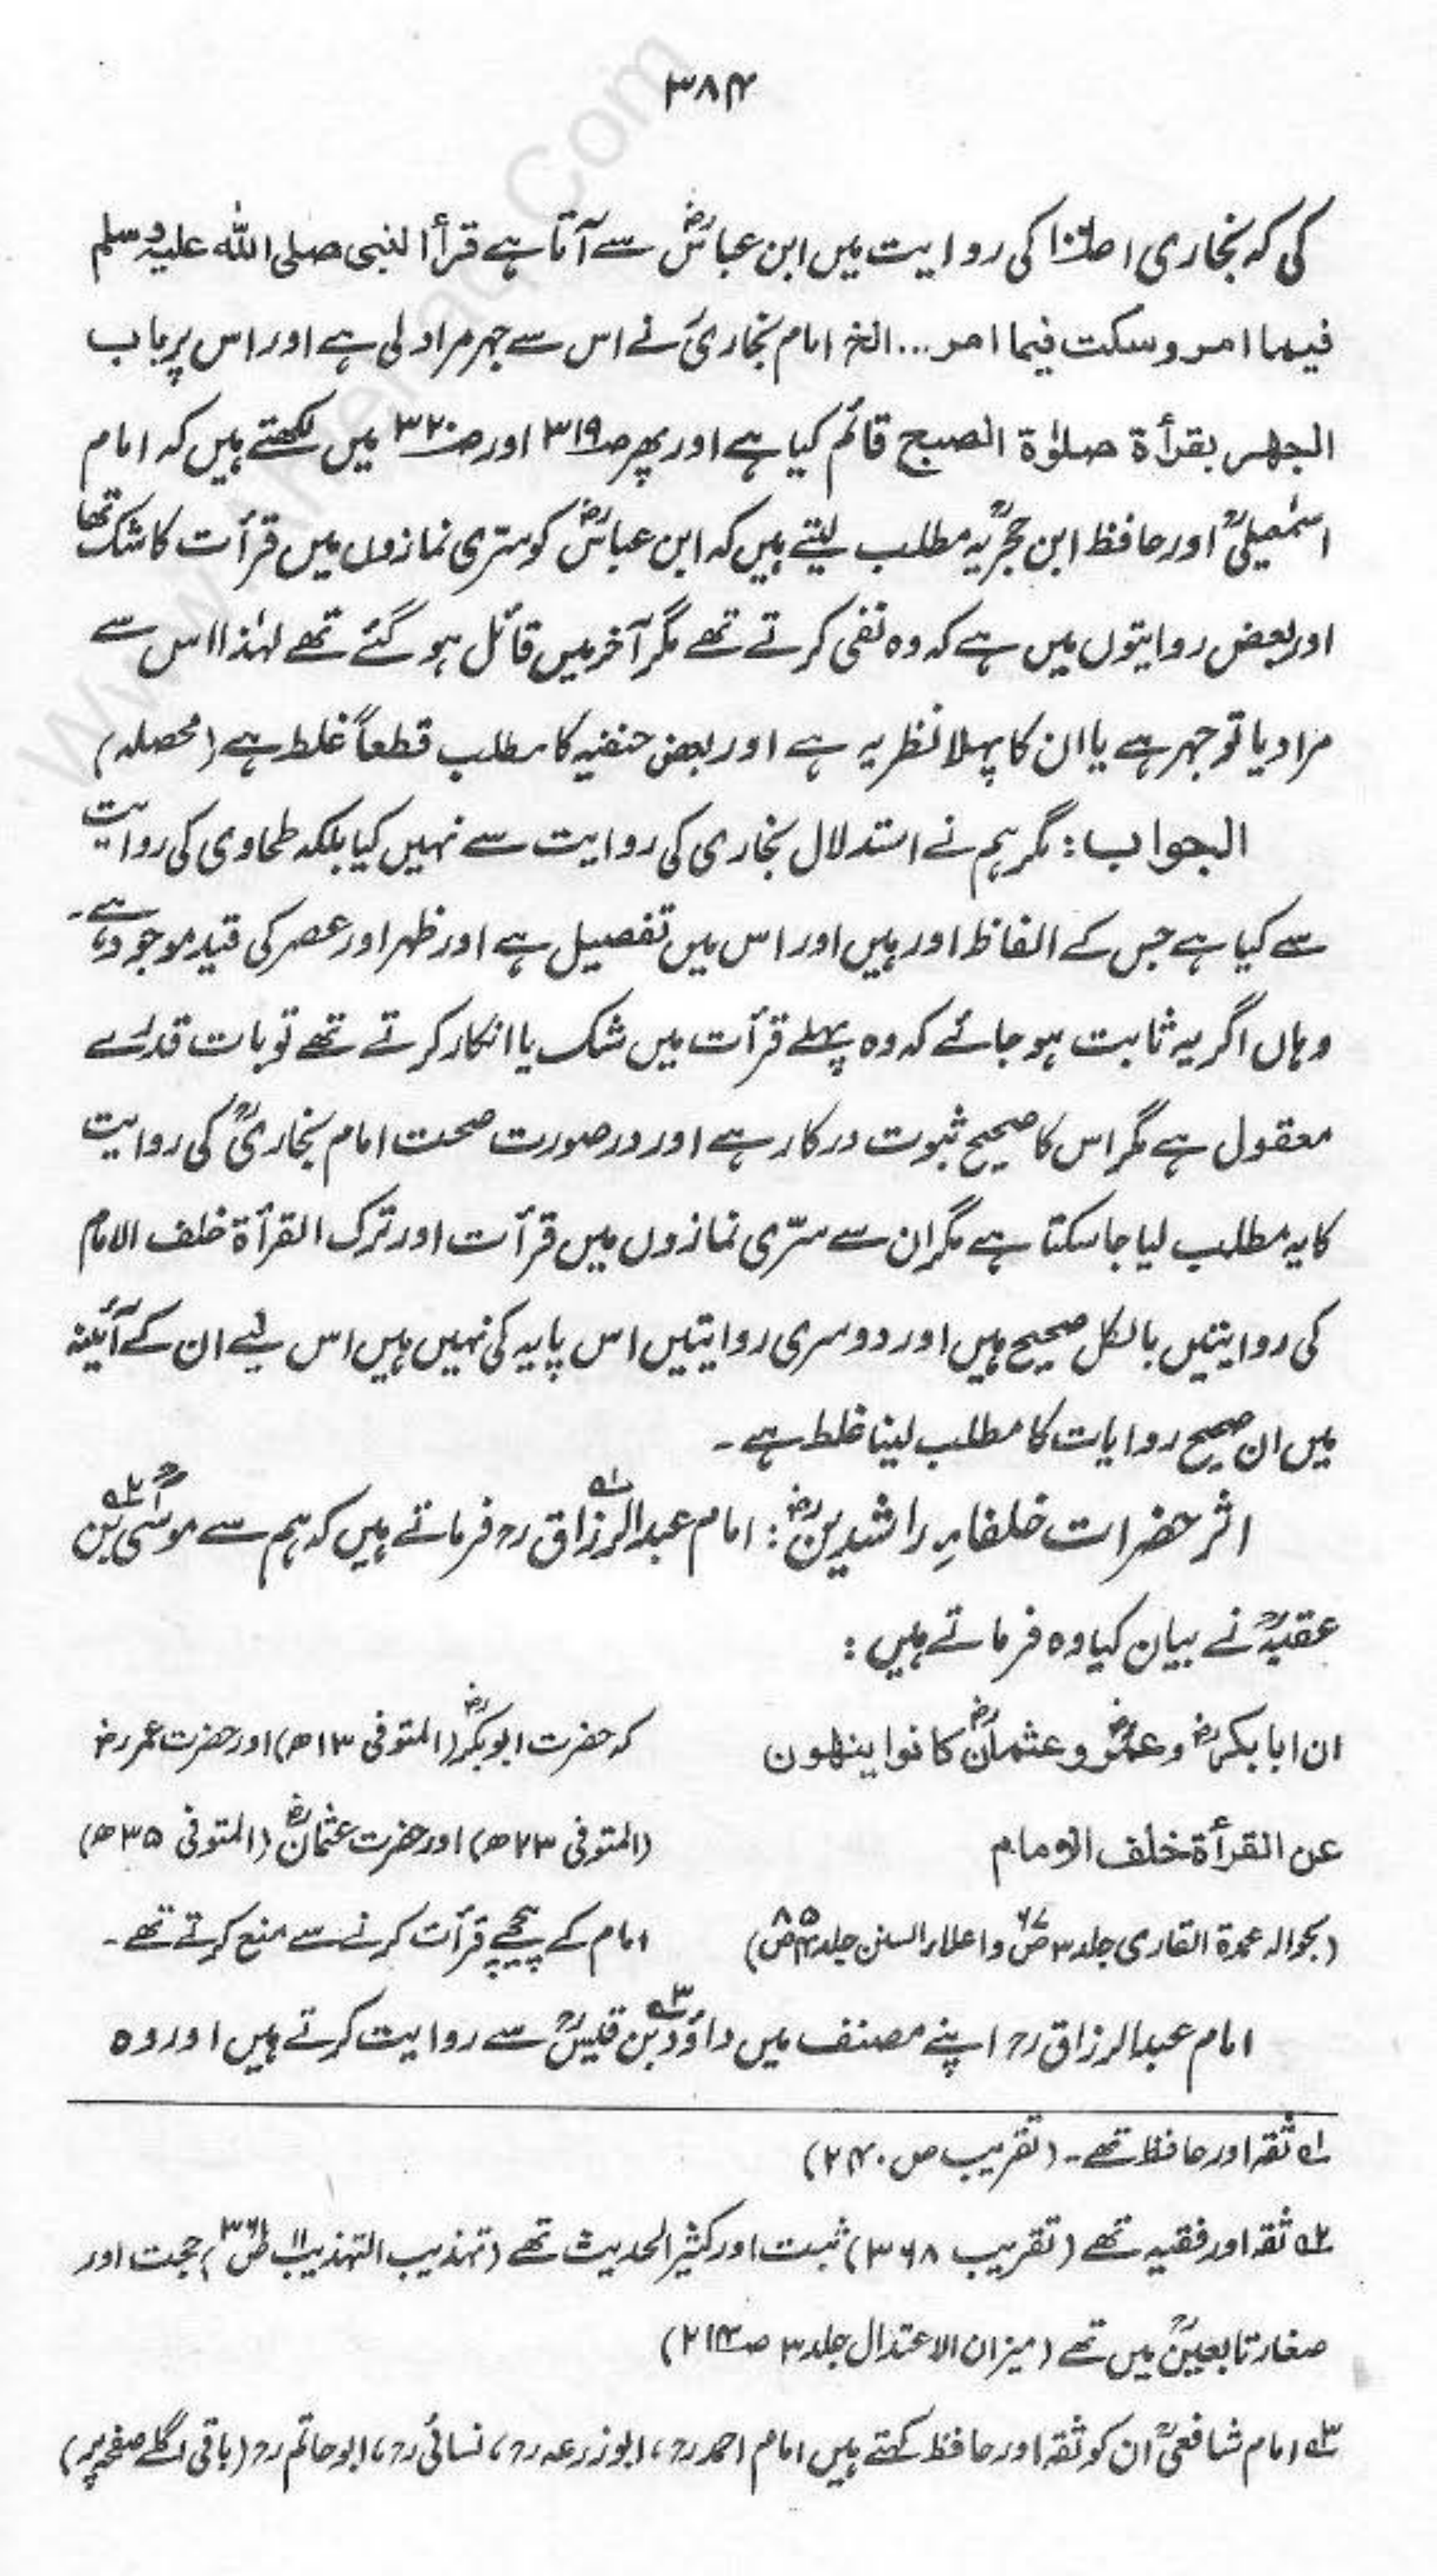 ۳۸۴
کی کہ بخاری ۱ ص۱۰۶ کی روایت میں ابن عباسؓ سے آتا ہے قرأ النبی صلی اللہ علیہ وسلم
فیما امر وسکت فیما امر ... الخ امام بخاریؒ نے اس سے جہر مراد لی ہے اور اس پر باب
الجھر بقرأة صلوٰة الصبح قائم کیا ہے اور پھر ص۳۱۹ اور ص۳۲۰ میں لکھتے ہیں کہ امام
اسمٰعیلیؒ اور حافظ ابن حجرؒ یہ مطلب لیتے ہیں کہ ابن عباسؓ کو سرّی نمازوں میں قرأت کا شک تھا
اور بعض روایتوں میں ہے کہ وہ نفی کرتے تھے مگر آخر میں قائل ہو گئے تھے لہٰذا اس سے
مراد یا تو جہر ہے یا ان کا پہلا نظریہ ہے اور بعض حنفیہ کا مطلب قطعاً غلط ہے (محصلہ)
الجواب: مگر ہم نے استدلال بخاری کی روایت سے نہیں کیا بلکہ طحاوی کی روایت
سے کیا ہے جس کے الفاظ اور ہیں اور اس میں تفصیل ہے اور ظہر اور عصر کی قید موجود ہے۔
وہاں اگر یہ ثابت ہو جائے کہ وہ پہلے قرأت میں شک یا انکار کرتے تھے تو بات قدرے
معقول ہے مگر اس کا صحیح ثبوت درکار ہے اور در صورت صحت امام بخاریؒ کی روایت
کا یہ مطلب لیا جا سکتا ہے مگر ان سے سرّی نمازوں میں قرأت اور ترک القرأة خلف الامام
کی روایتیں بالکل صحیح ہیں اور دوسری روایتیں اس پایہ کی نہیں ہیں اس لیے ان کے آئینہ
میں ان صحیح روایات کا مطلب لینا غلط ہے۔
اثر حضرات خلفاءِ راشدینؓ: امام عبدالرزاق۱ؒ فرماتے ہیں کہ ہم سے موسیٰ۲ؒ بن
عقبہؒ نے بیان کیا وہ فرماتے ہیں:
ان ابا بکرؓ وعمرؓ وعثمانؓ کانوا ینھون
عن القرأة خلف الامام
(بحوالہ عمدة القاری جلد ۳ ص۶۷ واعلاء السنن جلد ۴ ص۸۵)
کہ حضرت ابوبکرؓ (المتوفی ۱۳ھ) اور حضرت عمرؓ
(المتوفی ۲۳ھ) اور حضرت عثمانؓ (المتوفی ۳۵ھ)
امام کے پیچھے قرأت کرنے سے منع کرتے تھے۔
امام عبدالرزاقؒ اپنے مصنف میں داؤد۳ؒ بن قیسؒ سے روایت کرتے ہیں اور وہ
۱ ثقہ اور حافظ تھے۔ (تقریب ص ۲۴۰)
۲ ثقہ اور فقیہ تھے (تقریب ۳۶۸) ثبت اور کثیر الحدیث تھے (تہذیب التہذیب ج۱۰ ص۳۶۱) حجت اور
صغار تابعینؒ میں تھے (میزان الاعتدال جلد ۳ ص۲۱۴)
۳ امام شافعیؒ ان کو ثقہ اور حافظ کہتے ہیں امام احمدؒ، ابوزرعہؒ، نسائیؒ، ابوحاتمؒ (باقی اگلے صفحہ پر)